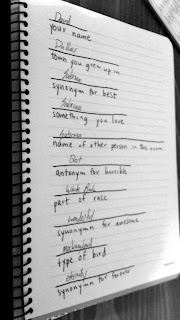 David
your name
Dallas
town you grew up in
synonym for best
something you love
name of other person in this room
Best
antonym for horrible
part of race
wonderful
synonymn for awesome
mockingbird
type of bird
eternity
synonymn for forever